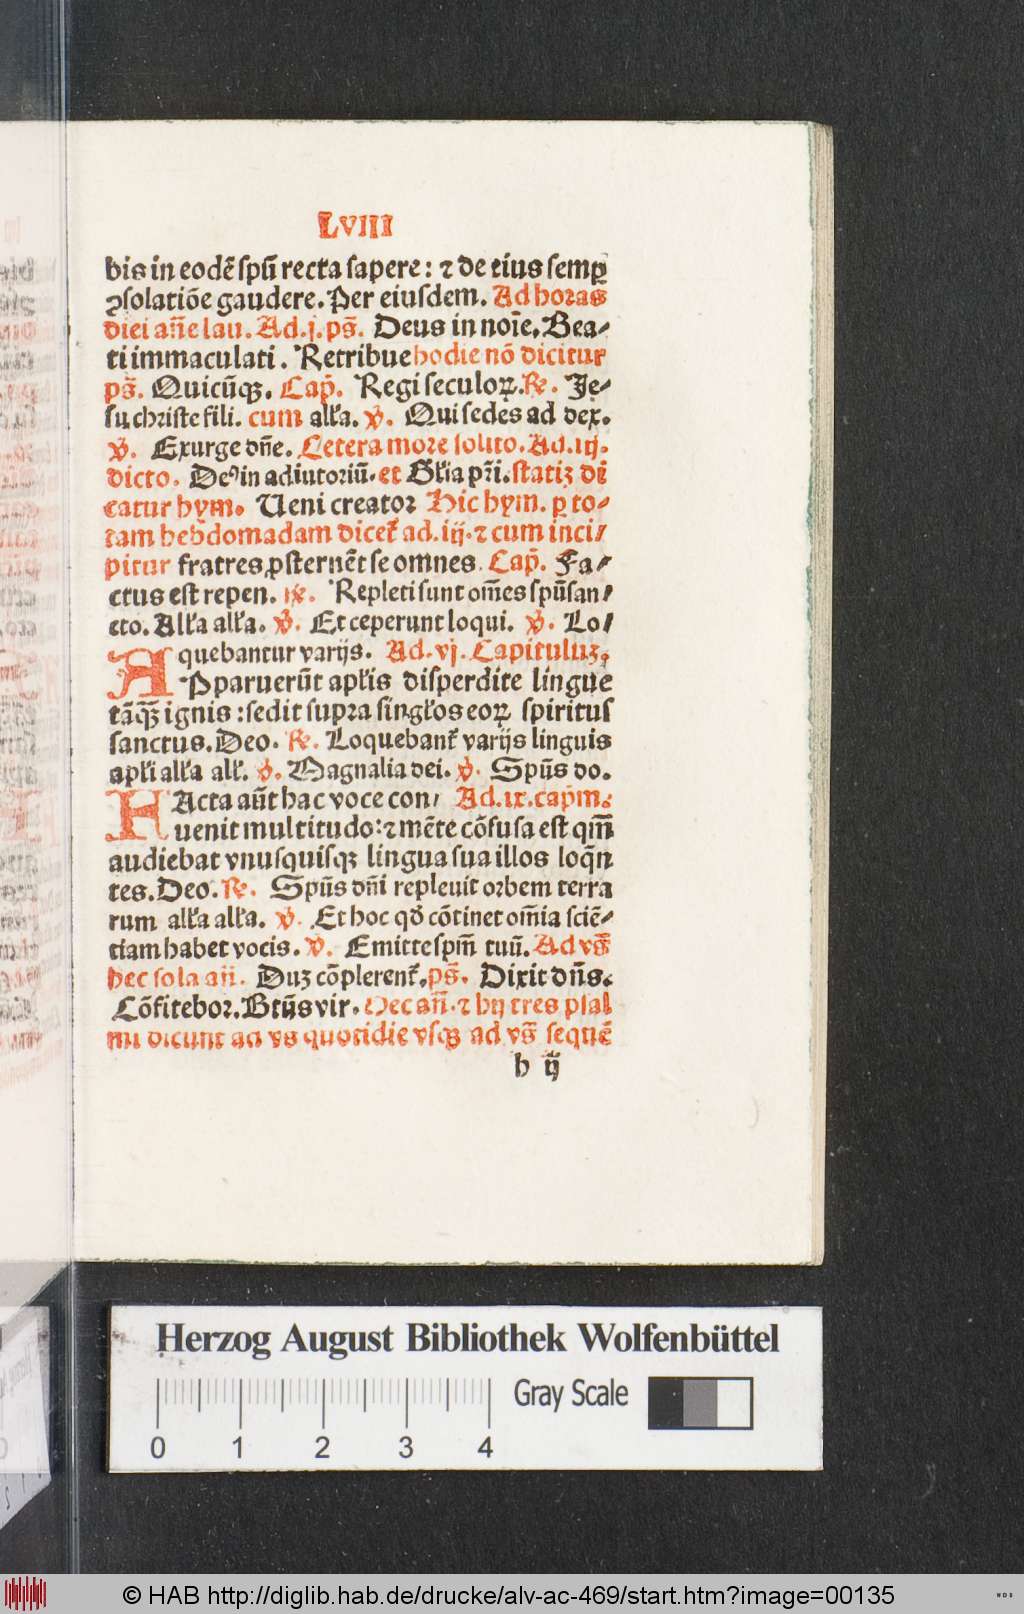 LVIII
bis in eodē spū recta sapere: ⁊ de eius semꝑ
ꝯsolatiōe gaudere. Per eiusdem. Ad horas
diei añe lau. Ad. j. ps̄. Deus in noīe. Bea⸗
ti immaculati. Retribue hodie nō dicitur
ps̄. Quicūqꝫ. Cap̄. Regi seculoꝝ. ℟. Je⸗
su christe fili. cum alła. ℣. Qui sedes ad dex.
℣. Exurge dn̄e. Cetera more solito. Ad. iij.
dicto. Deꝰ in adiutoriū. et Gl̄ia pr̄i. statiꝫ di
catur hym. Ueni creator Hic hym. ꝑ to⸗
tam hebdomadam dicet᷑ ad. iij. ⁊ cum inci⸗
pitur fratres ꝓsternēt se omnes. Cap̄. Fa⸗
ctus est repen. ℟. Repleti sunt om̄es spū san⸗
cto. Alła alła. ℣. Et ceperunt loqui. ℣. Lo⸗
quebantur varijs. Ad. vj. Capituluꝫ.
APparuerūt apłis disperdite lingue
tāqꝫ ignis: sedit supra singłos eoꝝ spiritus
sanctus. Deo. ℟. Loquebant᷑ varijs linguis
apłi alła ałł. ℣. Magnalia dei. ℣. Spūs do.
FActa aūt hac voce con⸗ Ad. ix. cap̄m.
uenit multitudo: ⁊ mēte cōfusa est qm̄
audiebat vnusquisqꝫ lingua sua illos loq̄n
tes. Deo. ℟. Spūs dn̄i repleuit orbem terra
rum alła alła. ℣. Et hoc qđ cōtinet om̄ia sciē⸗
tiam habet vocis. ℣. Emitte spm̄ tuū. Ad vs̄
hec sola añ. Duꝫ cōplerent᷑. ps̄. Dixit dn̄s.
Cōfitebor. Btūs vir. Hec añ. ⁊ hij tres psal
mi dicunt ad vs quotidie vsqꝫ ad vs̄ sequē
h ij
Herzog August Bibliothek Wolfenbüttel
Gray Scale
0 1 2 3 4
© HAB http://diglib.hab.de/drucke/alv-ac-469/start.htm?image=00135